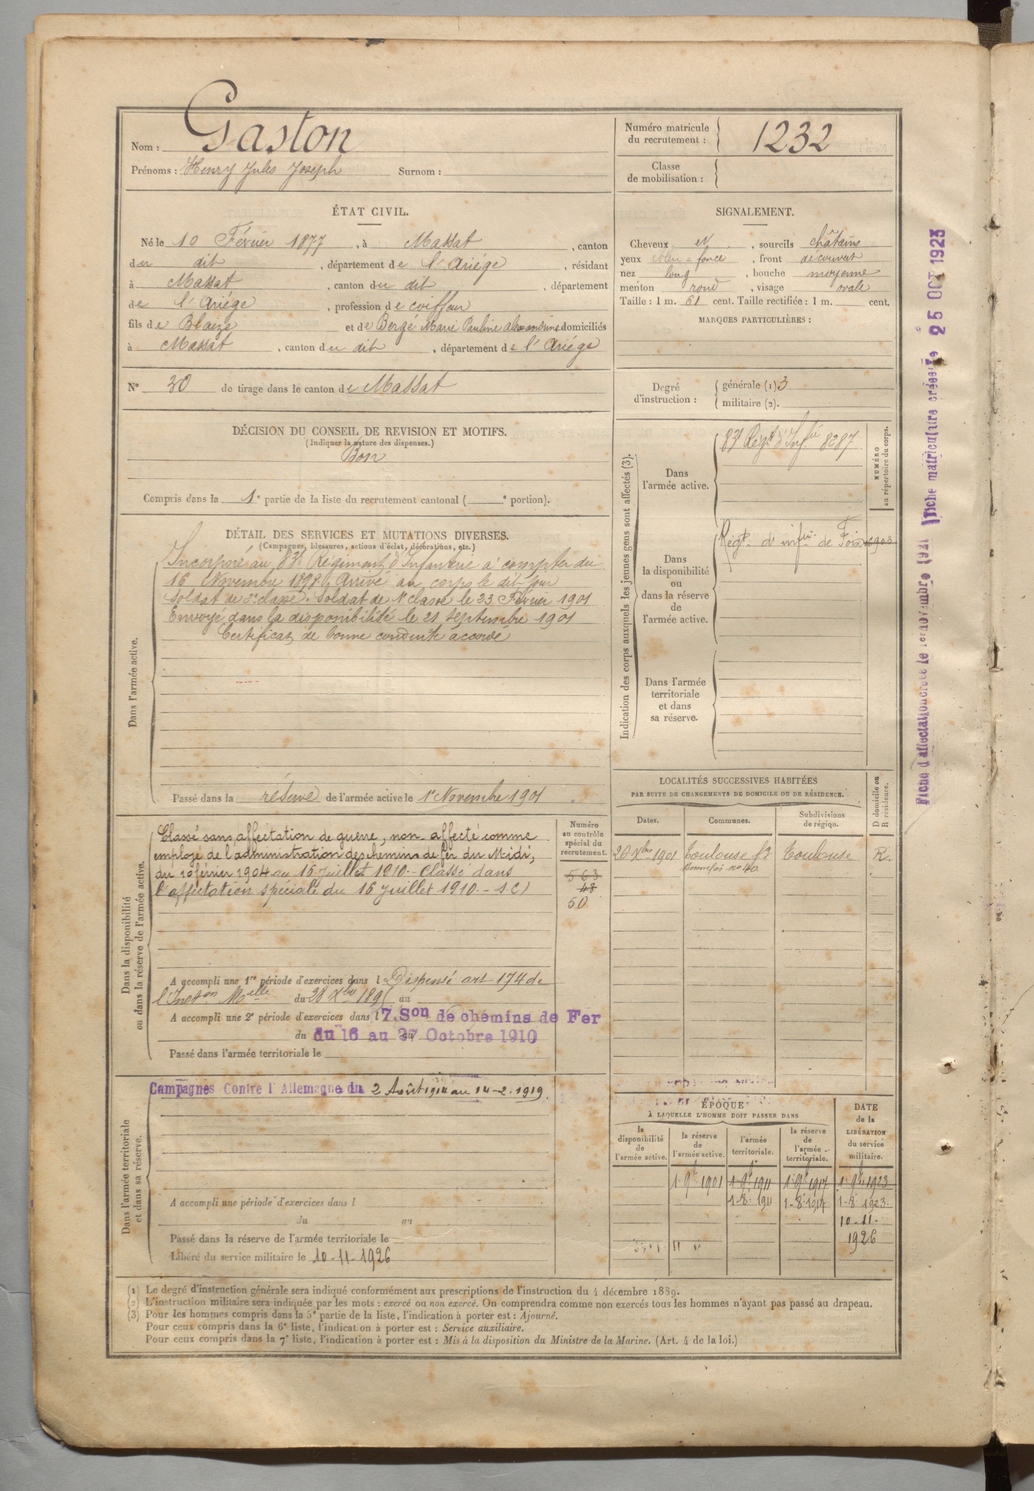 Nom : Gaston
Prénoms : Henry Jules Joseph Surnom :
Numéro matricule du recrutement : 1232
Classe de mobilisation :
ÉTAT CIVIL.
Né le 10 Février 1877, à Massat, canton
du dit, département de l'Ariége, résidant
à Massat, canton du dit, département
de l'Ariége, profession de coiffeur
fils de Blaize et de Bergé Marie Pauline Alexandrine domiciliés
à Massat, canton du dit, département de l'Ariége
SIGNALEMENT.
Cheveux et, sourcils châtains
yeux bleu foncé, front découvert
nez long, bouche moyenne
menton rond, visage ovale
Taille : 1 m. 61 cent. Taille rectifiée : 1 m. cent.
MARQUES PARTICULIÈRES :
N° 30 de tirage dans le canton de Massat
Degré d'instruction : générale (1) 3
militaire (2).
DÉCISION DU CONSEIL DE REVISION ET MOTIFS.
(Indiquer la nature des dispenses.)
Bon
Compris dans la 1e partie de la liste du recrutement cantonal ( e portion).
DÉTAIL DES SERVICES ET MUTATIONS DIVERSES.
(Campagnes, blessures, actions d'éclat, décorations, etc.)
Dans l'armée active.
Incorporé au 83e Régiment d'Infanterie à compter du
16 Novembre 1898. Arrivé au corps le dit jour
Soldat de 2e classe. Soldat de 1e classe le 23 Février 1901
Envoyé dans la disponibilité le 21 Septembre 1901
Certificat de bonne conduite accordé
Passé dans la réserve de l'armée active le 1er Novembre 1901
Indication des corps auxquels les jeunes gens sont affectés (3).
NUMÉRO au répertoire du corps.
Dans l'armée active.
83e Régt d'Infie 8287
Dans la disponibilité ou dans la réserve de l'armée active.
Régt d'infie de Foix
Dans l'armée territoriale et dans sa réserve.
LOCALITÉS SUCCESSIVES HABITÉES
PAR SUITE DE CHANGEMENTS DE DOMICILE OU DE RÉSIDENCE.
Dates. Communes. Subdivisions de région. D domicile ou R résidence.
20 Xbre 1901 Toulouse Toulouse R.
Dans la disponibilité ou dans la réserve de l'armée active.
Numéro au contrôle spécial du recrutement.
563
48
60
Classé sans affectation de guerre, non affecté comme
employé de l'administration des chemins de fer du Midi,
du 10 février 1904 au 15 juillet 1910. - Classé dans
l'affectation spéciale du 16 juillet 1910. -
A accompli une 1re période d'exercices dans l Dispensé art 174 de
l'Inston Melle du 28 Xbre 1895 au
A accompli une 2e période d'exercices dans l 7.Son de chemins de Fer
du du 16 au 27 Octobre 1910
Passé dans l'armée territoriale le
Dans l'armée territoriale et dans sa réserve.
Campagnes Contre l'Allemagne du 2 Août 1914 au 14-2-1919.
A accompli une période d'exercices dans l
du au
Passé dans la réserve de l'armée territoriale le
Libéré du service militaire le 10-11-1926
ÉPOQUE
À LAQUELLE L'HOMME DOIT PASSER DANS
la disponibilité de l'armée active.
la réserve de l'armée active.
l'armée territoriale.
la réserve de l'armée territoriale.
DATE de la LIBÉRATION du service militaire.
1 9bre 1901 1 9bre 1911 1 9bre 1917 1 9bre 1923
1-8 1911 1-8 1917 1-8 1923
10-11-
1926
(1) Le degré d'instruction générale sera indiqué conformément aux prescriptions de l'instruction du 4 décembre 1889.
(2) L'instruction militaire sera indiquée par les mots : exercé ou non exercé. On comprendra comme non exercés tous les hommes n'ayant pas passé au drapeau.
(3) Pour les hommes compris dans la 5e partie de la liste, l'indication à porter est : Ajourné.
Pour ceux compris dans la 6e liste, l'indication à porter est : Service auxiliaire.
Pour ceux compris dans la 7e liste, l'indication à porter est : Mis à la disposition du Ministre de la Marine. (Art. 4 de la loi.)
Fiche d'affectation créée le 1er novembre 1921 Fiche matriculaire créée le 25 OCT 1923